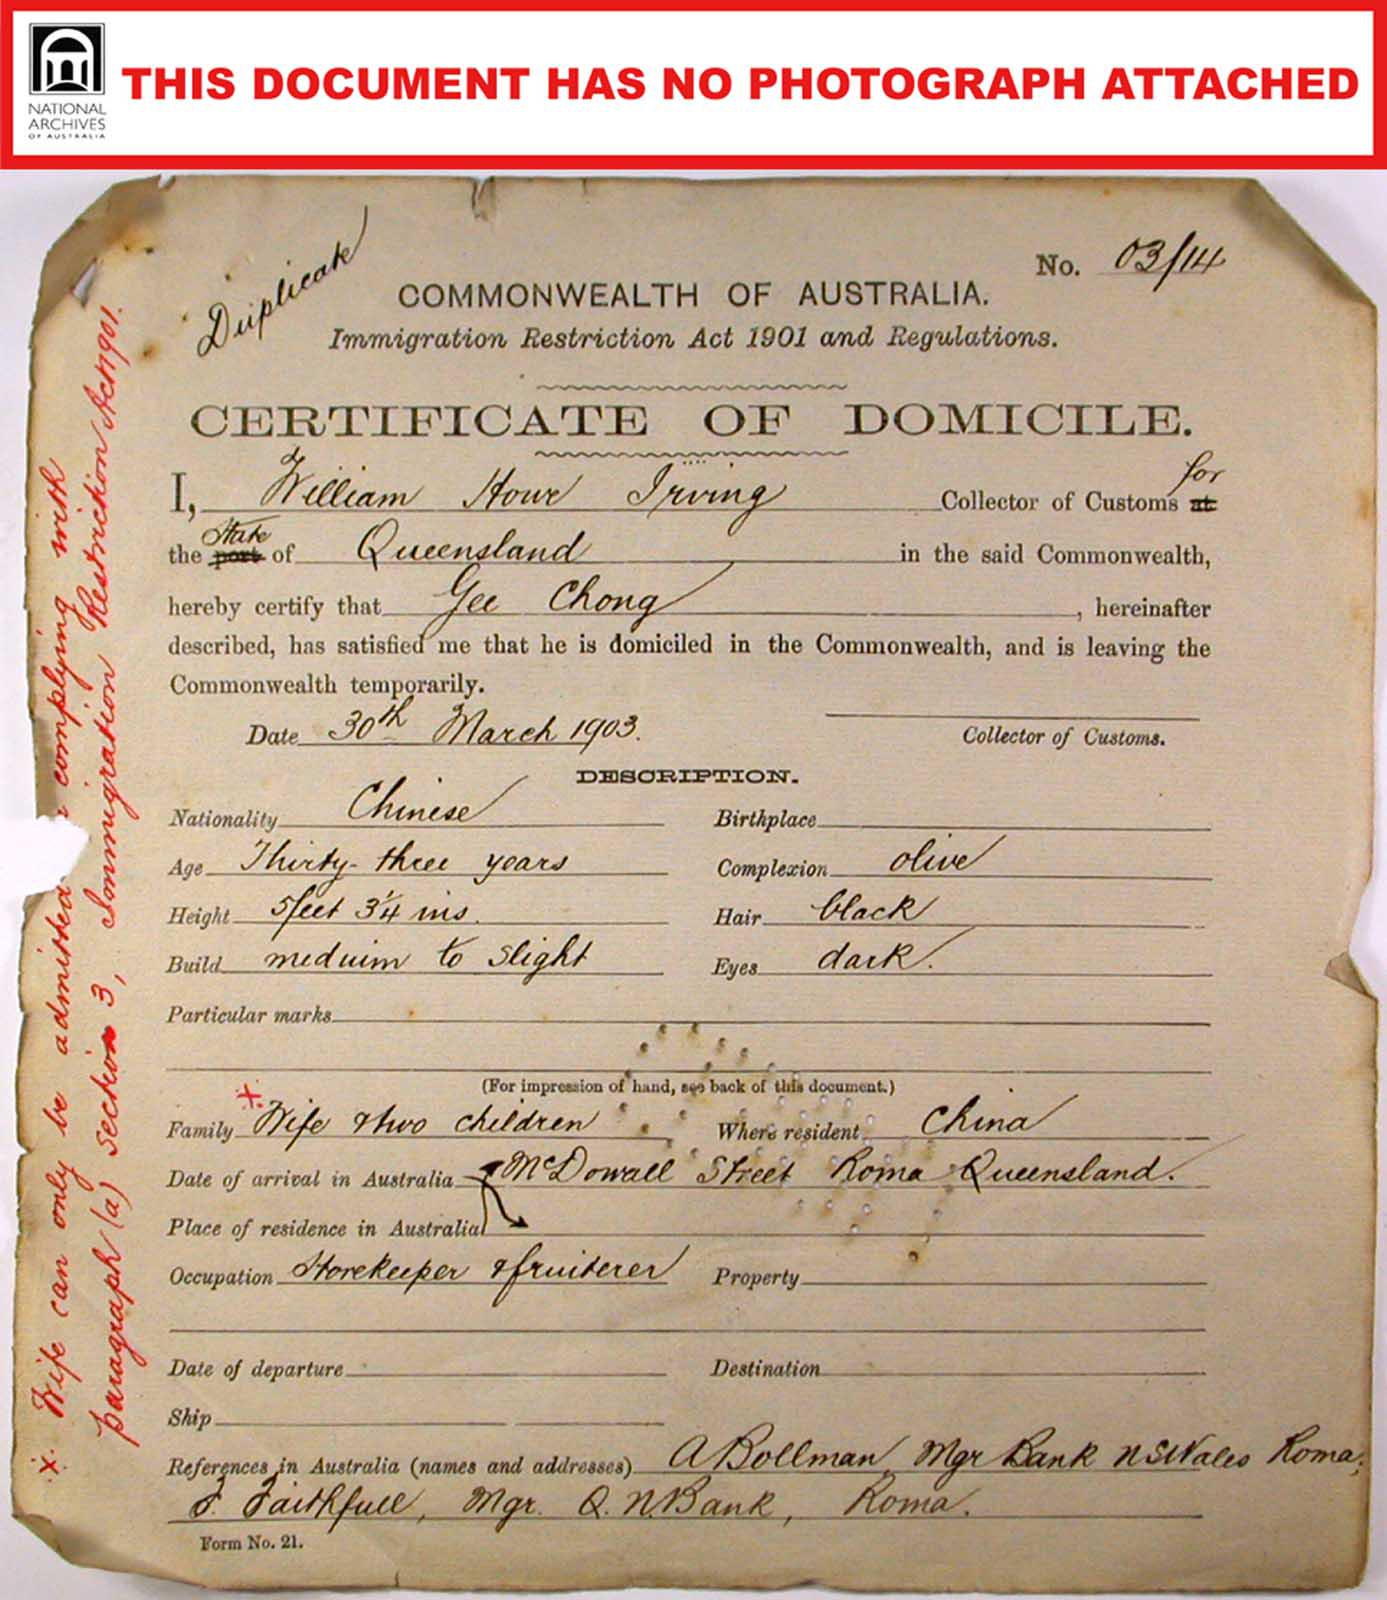 NATIONAL
ARCHIVES
OF AUSTRALIA
THIS DOCUMENT HAS NO PHOTOGRAPH ATTACHED
Duplicate
No. 03/14
COMMONWEALTH OF AUSTRALIA.
Immigration Restriction Act 1901 and Regulations.
CERTIFICATE OF DOMICILE.
I, William Howe Irving Collector of Customs at for
the port State of Queensland in the said Commonwealth,
hereby certify that Gee Chong, hereinafter
described, has satisfied me that he is domiciled in the Commonwealth, and is leaving the
Commonwealth temporarily.
Date 30th March 1903.
Collector of Customs.
DESCRIPTION.
Nationality Chinese Birthplace
Age Thirty-three years Complexion olive
Height 5 feet 3 1/4 ins. Hair black
Build meduim to slight Eyes dark.
Particular marks
(For impression of hand, see back of this document.)
Family x. Wife & two children Where resident China
Date of arrival in Australia McDowall Street Roma Queensland.
Place of residence in Australia
Occupation Storekeeper & fruiterer Property
Date of departure Destination
Ship
References in Australia (names and addresses) A Bollman Mgr Bank N S Wales Roma;
F. Faithfull, Mgr. Q. N. Bank, Roma.
Form No. 21.
x. Wife can only be admitted complying with
paragraph (a) section 3, Immigration Restriction Act 1901.